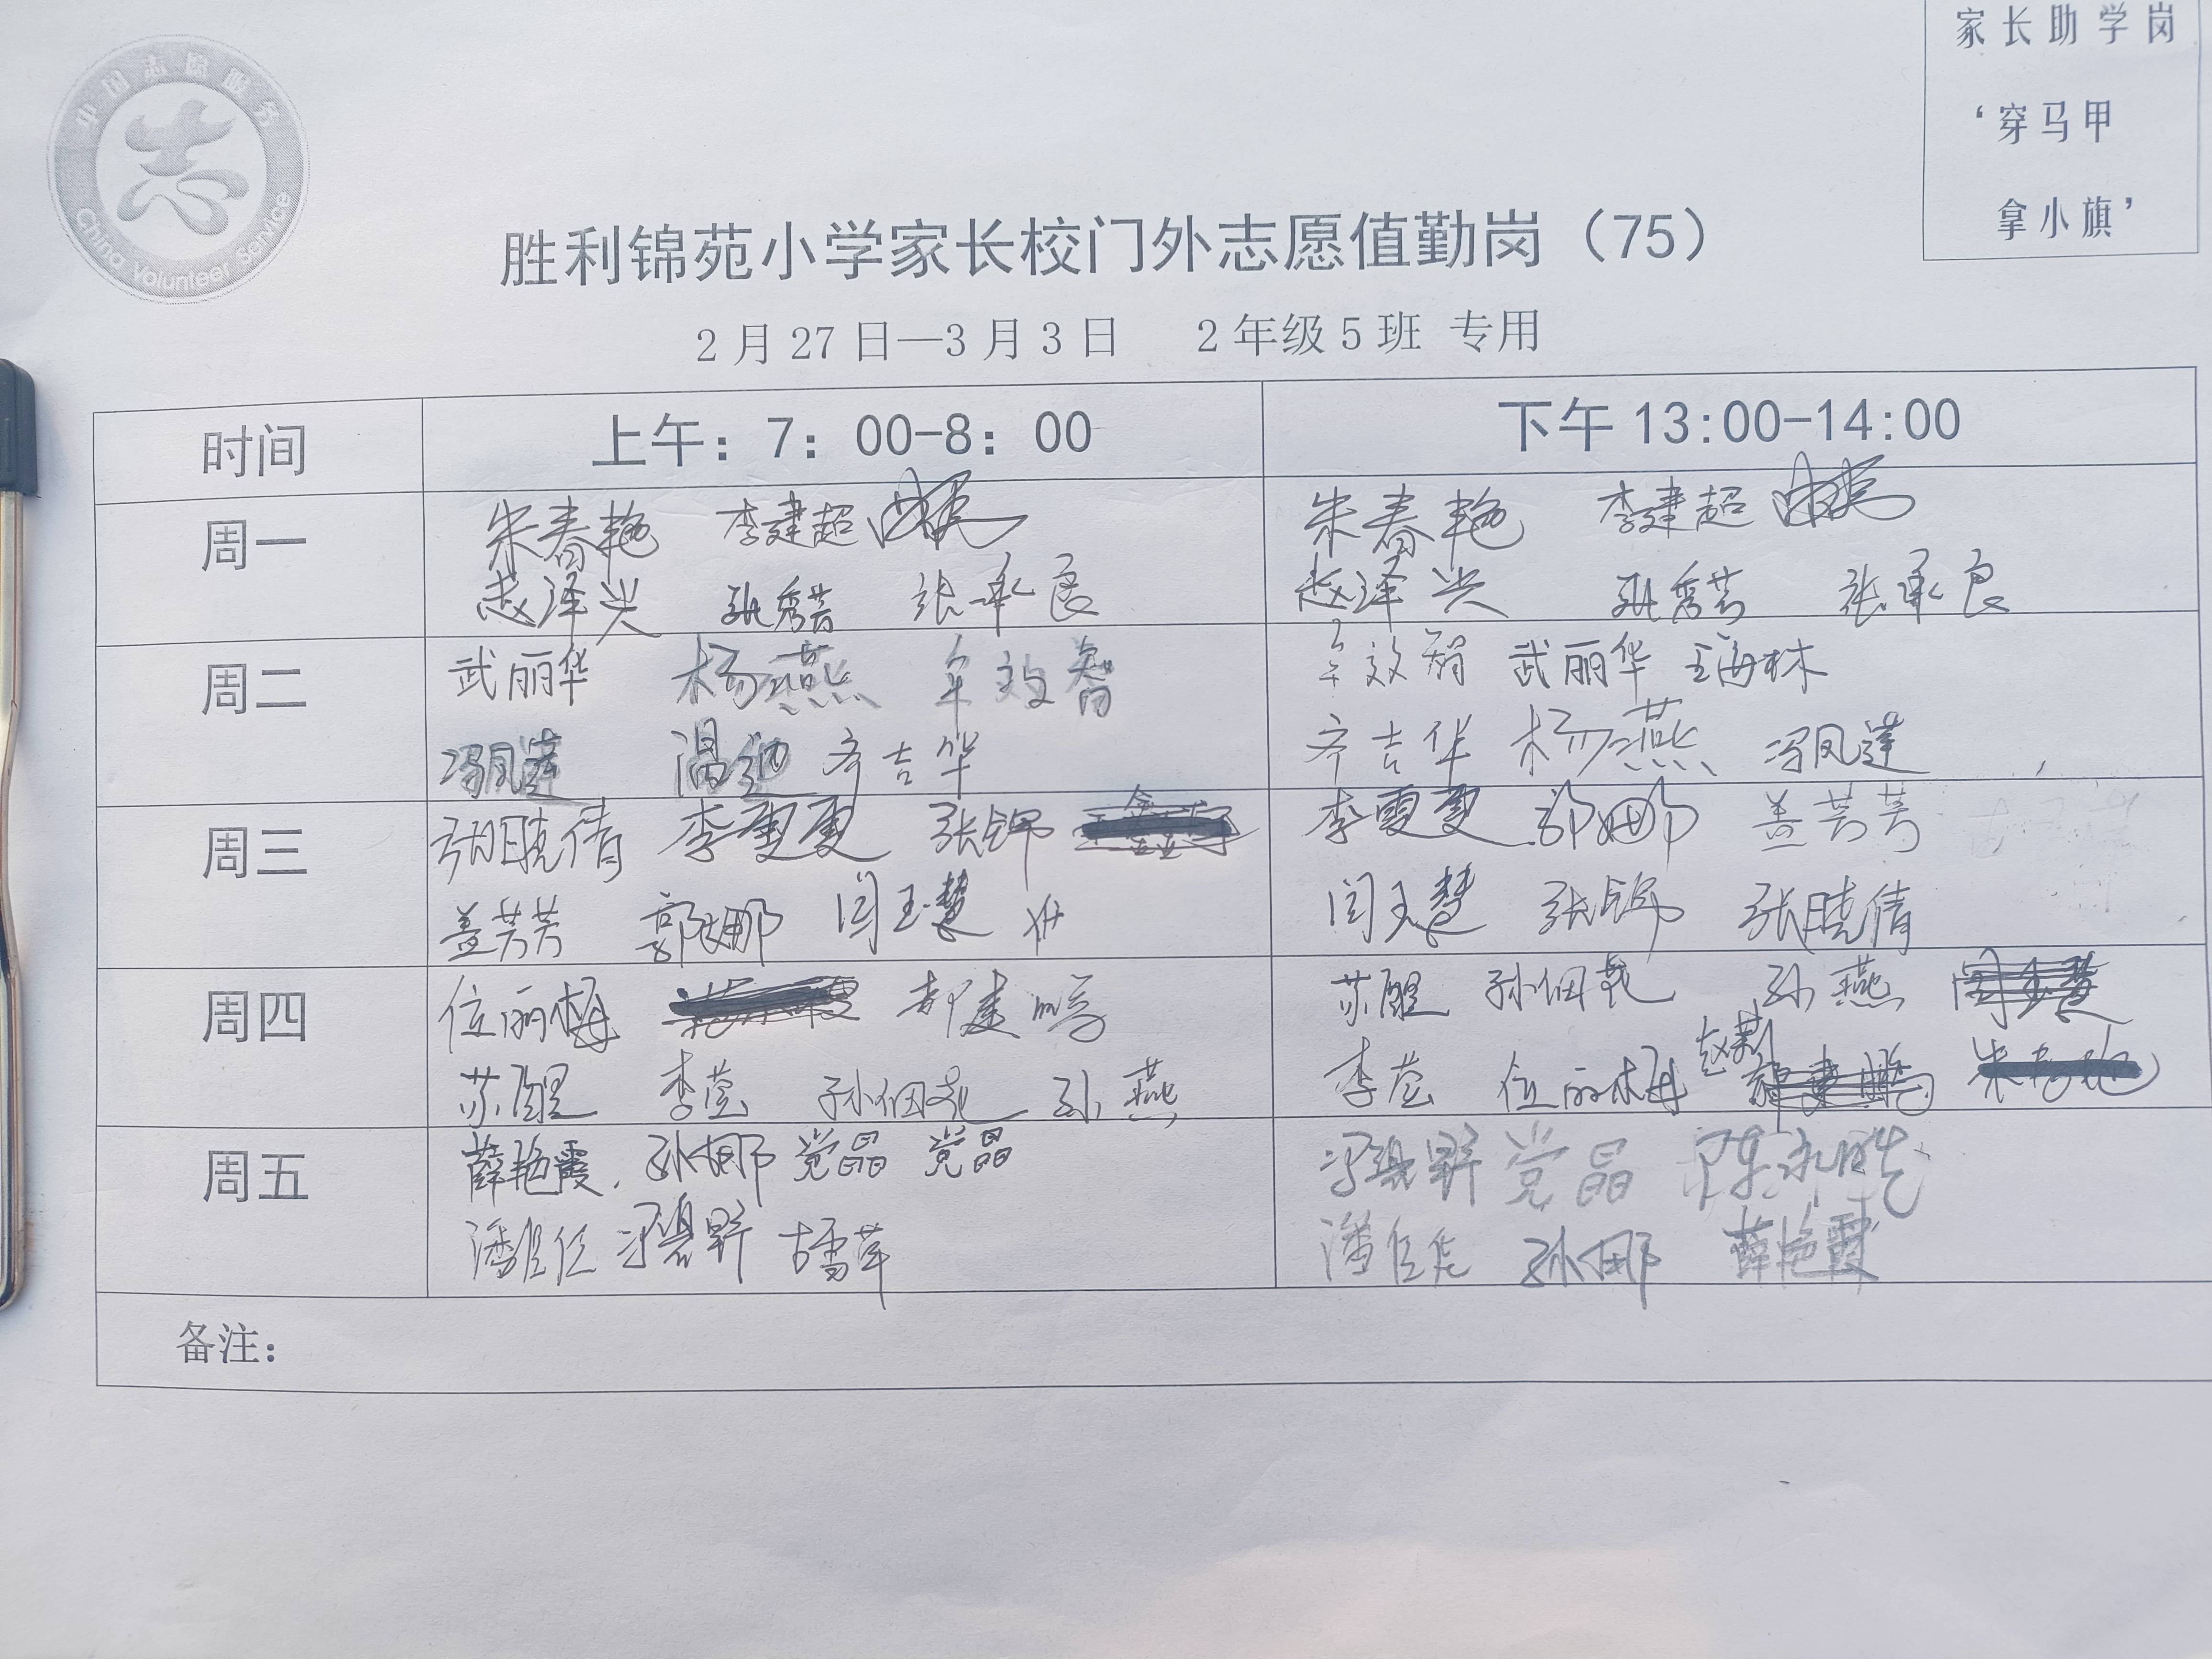 中国志愿服务
China Volunteer Service
家长助学岗
‘穿马甲
拿小旗’
胜利锦苑小学家长校门外志愿值勤岗（75）
2月27日—3月3日 2年级5班 专用
时间 上午：7：00-8：00 下午13:00-14:00
周一
朱春艳 李建超
赵泽兴 张秀芳 张承良
朱春艳 李建超
赵泽兴 张秀芳 张承良
周二
武丽华 杨燕 牟效智
冯凤莲 温迎 齐吉华
牟效智 武丽华 王海林
齐吉华 杨燕 冯凤莲
周三
张晓倩 李雯雯 张锦
盖芳芳 郭娜 闫玉慧
李雯雯 郭娜 盖芳芳
闫玉慧 张锦 张晓倩
周四
位丽梅
苏醒 李莹 孙佃苑 孙燕
苏醒 孙佃苑 孙燕 闫玉慧
李莹 位丽梅 赵莉
周五
薛艳霞 孙娜 党晶 党晶
潘佳佳 冯碧野 古雪苹
冯碧野 党晶 陈永胜
潘佳佳 孙娜 薛艳霞
备注：